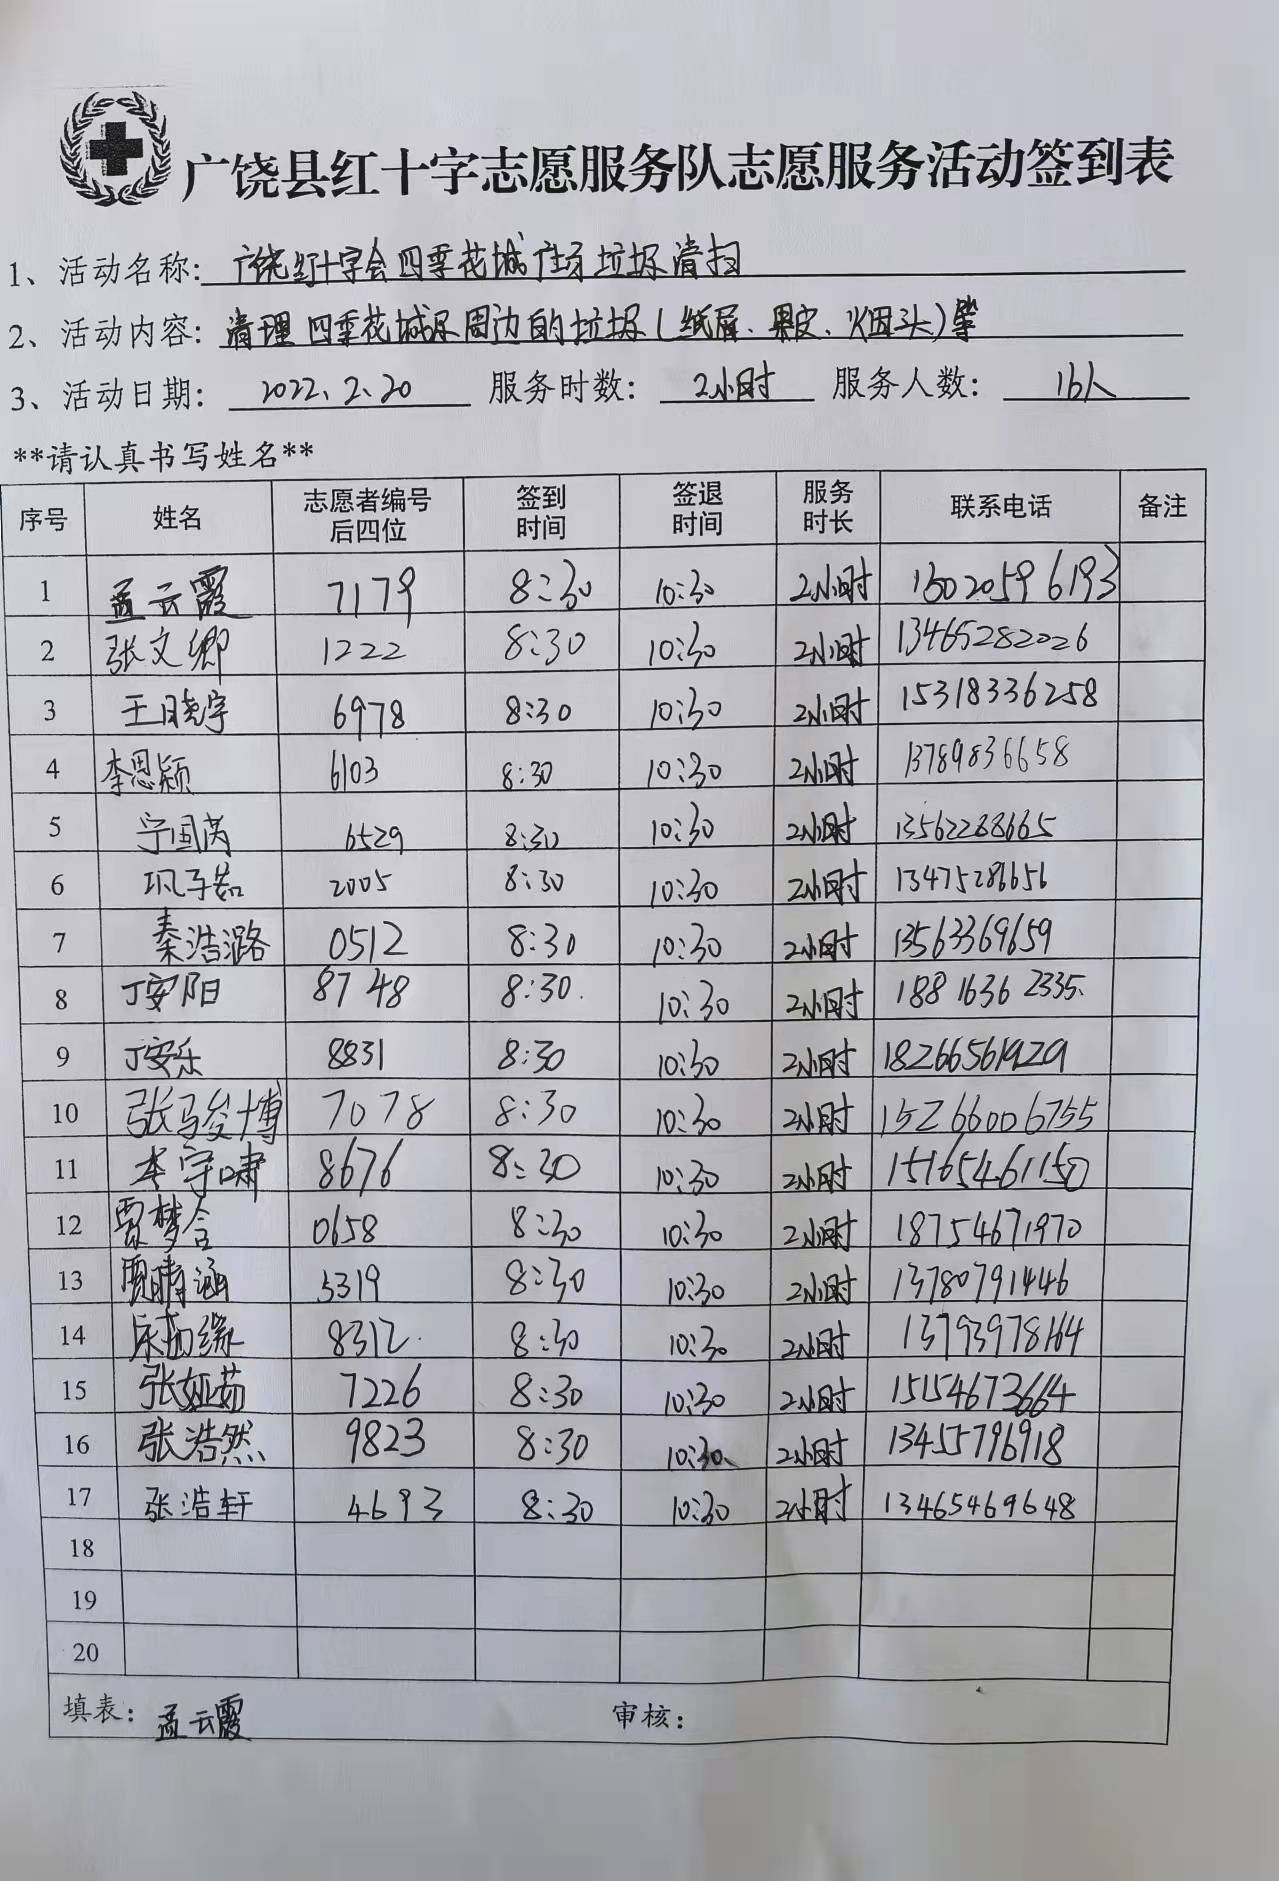 广饶县红十字志愿服务队志愿服务活动签到表
1、活动名称: 广饶红十字会四季花城 垃圾清扫
2、活动内容: 清理四季花城及周边的垃圾(纸屑、果皮、烟头)等
3、活动日期: 2022、2、20 服务时数: 2小时 服务人数: 16人
**请认真书写姓名**
序号 姓名 志愿者编号后四位 签到时间 签退时间 服务时长 联系电话 备注
1 孟云霞 7179 8:30 10:30 2小时 13020596193
2 张文卿 1222 8:30 10:30 2小时 13465282026
3 王晓宇 6978 8:30 10:30 2小时 15318336258
4 李恩颖 6103 8:30 10:30 2小时 13789836658
5 宁国芮 6529 8:30 10:30 2小时 13562288665
6 巩子茹 2005 8:30 10:30 2小时 13475286656
7 秦浩潞 0512 8:30 10:30 2小时 13563369659
8 丁安阳 8748 8:30 10:30 2小时 188 1636 2335
9 丁安乐 8831 8:30 10:30 2小时 18266561929
10 张骏博 7078 8:30 10:30 2小时 15266006755
11 李宇啸 8676 8:30 10:30 2小时 15165461150
12 贾梦含 0658 8:30 10:30 2小时 18754671970
13 贾晴涵 5319 8:30 10:30 2小时 13780791446
14 8312 8:30 10:30 2小时 13793978164
15 张娅茹 7226 8:30 10:30 2小时 15154673664
16 张浩然 9823 8:30 10:30 2小时 13455796918
17 张浩轩 4693 8:30 10:30 2小时 13465469648
18
19
20
填表: 孟云霞 审核: